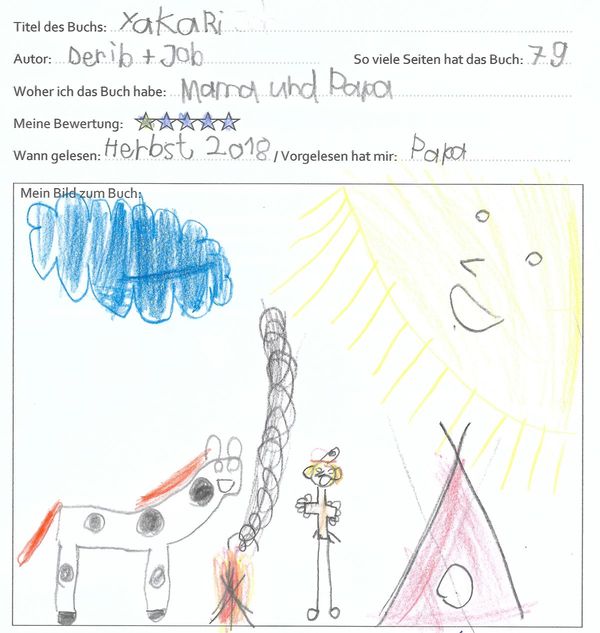 Titel des Buchs: Yakari
Autor: Derib + Job So viele Seiten hat das Buch: 79
Woher ich das Buch habe: Mama und Papa
Meine Bewertung:
Wann gelesen: Herbst 2018 / Vorgelesen hat mir: Papa
Mein Bild zum Buch: